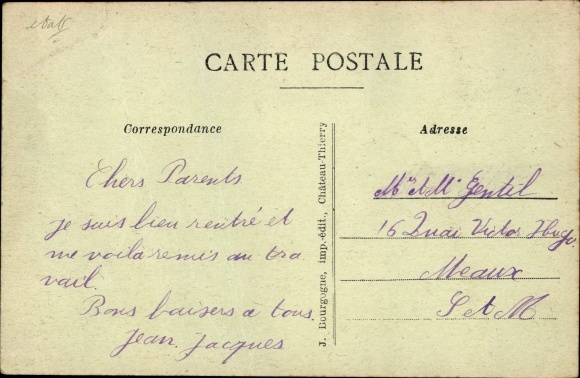 CARTE POSTALE
Correspondance
Chers Parents
je suis bien rentré et
me voilà remis au tra
vail.
Bons baisers à tous.
Jean Jacques
J. Bourgogne, imp.-édit., Château-Thierry
Adresse
Mr et Me Gentil
16 Quai Victor Hugo
Meaux
S et M